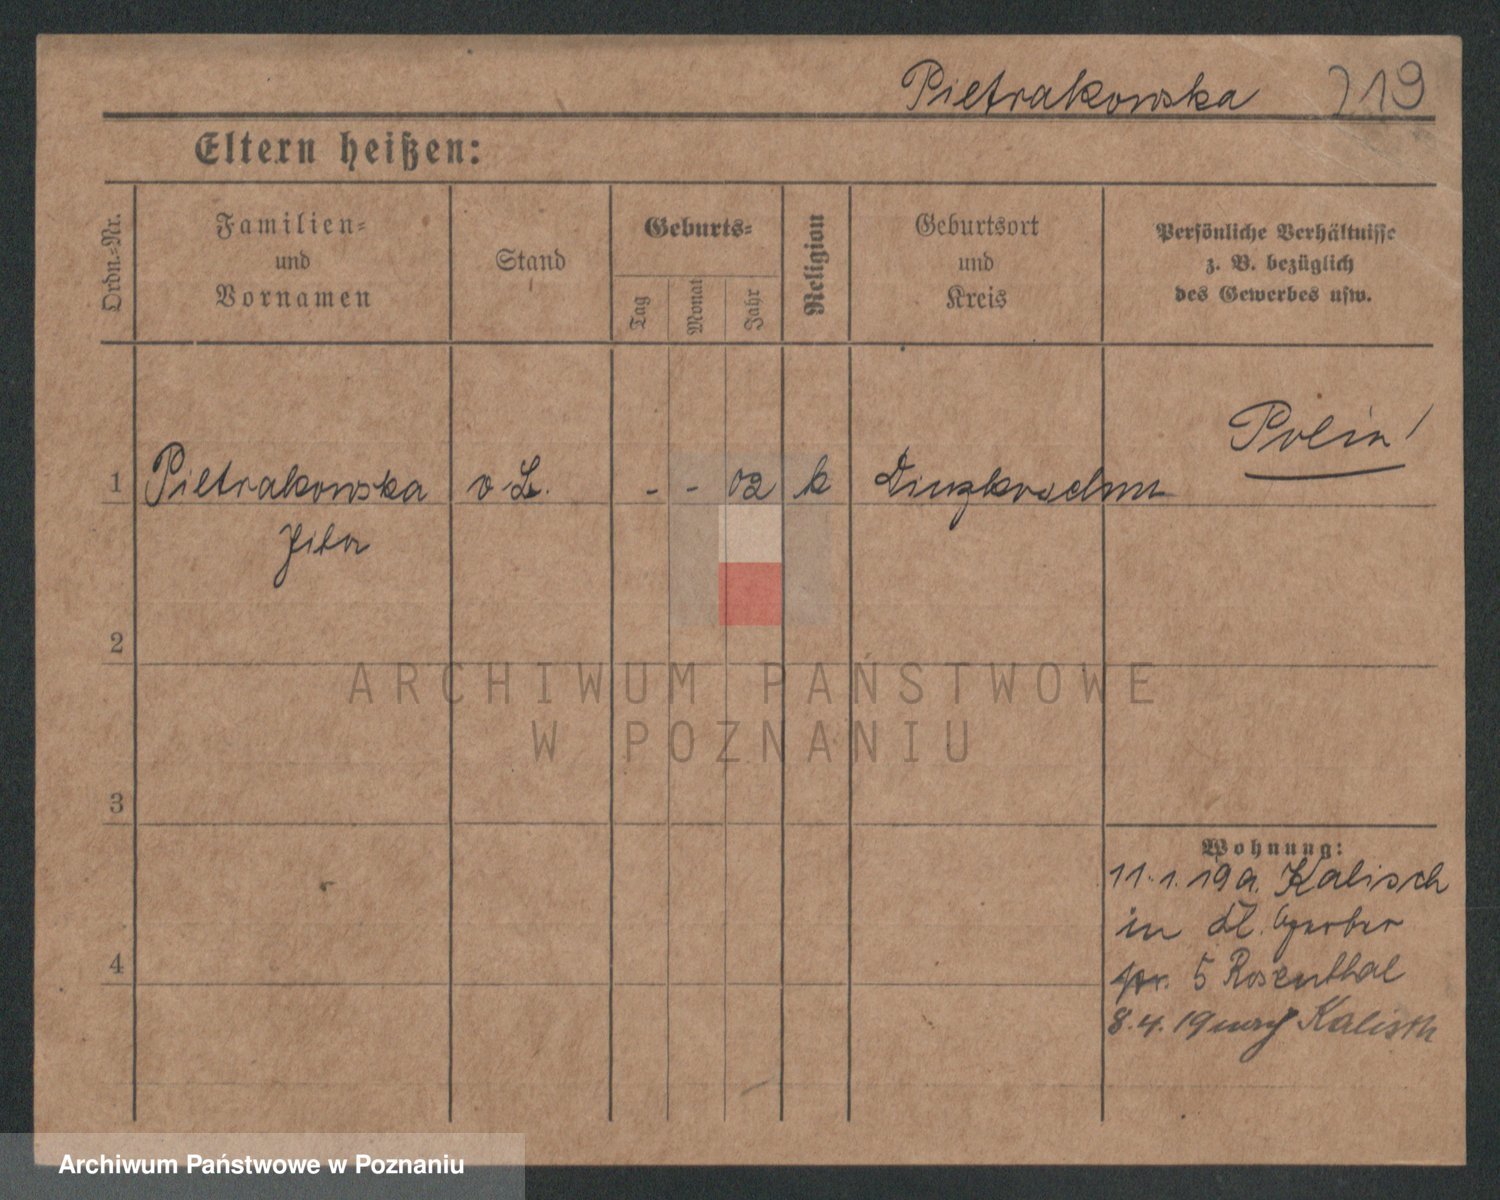 Pietrakowska 219
Eltern heißen:
Ordn.-Nr.
Familien-
und
Vornamen
Stand
Geburts-
Tag
Monat
Jahr
Religion
Geburtsort
und
Kreis
Persönliche Verhältnisse
z. B. bezüglich
des Gewerbes usw.
Polin!
1 Pietrakowska v. L. - - 02 k
2
3
4
Wohnung:
11.1.19 a. Kalisch
in Kl. Gerber
str. 5 Rosenthal
8.4.19 nach Kalisch
ARCHIWUM PAŃSTWOWE
W POZNANIU
Archiwum Państwowe w Poznaniu